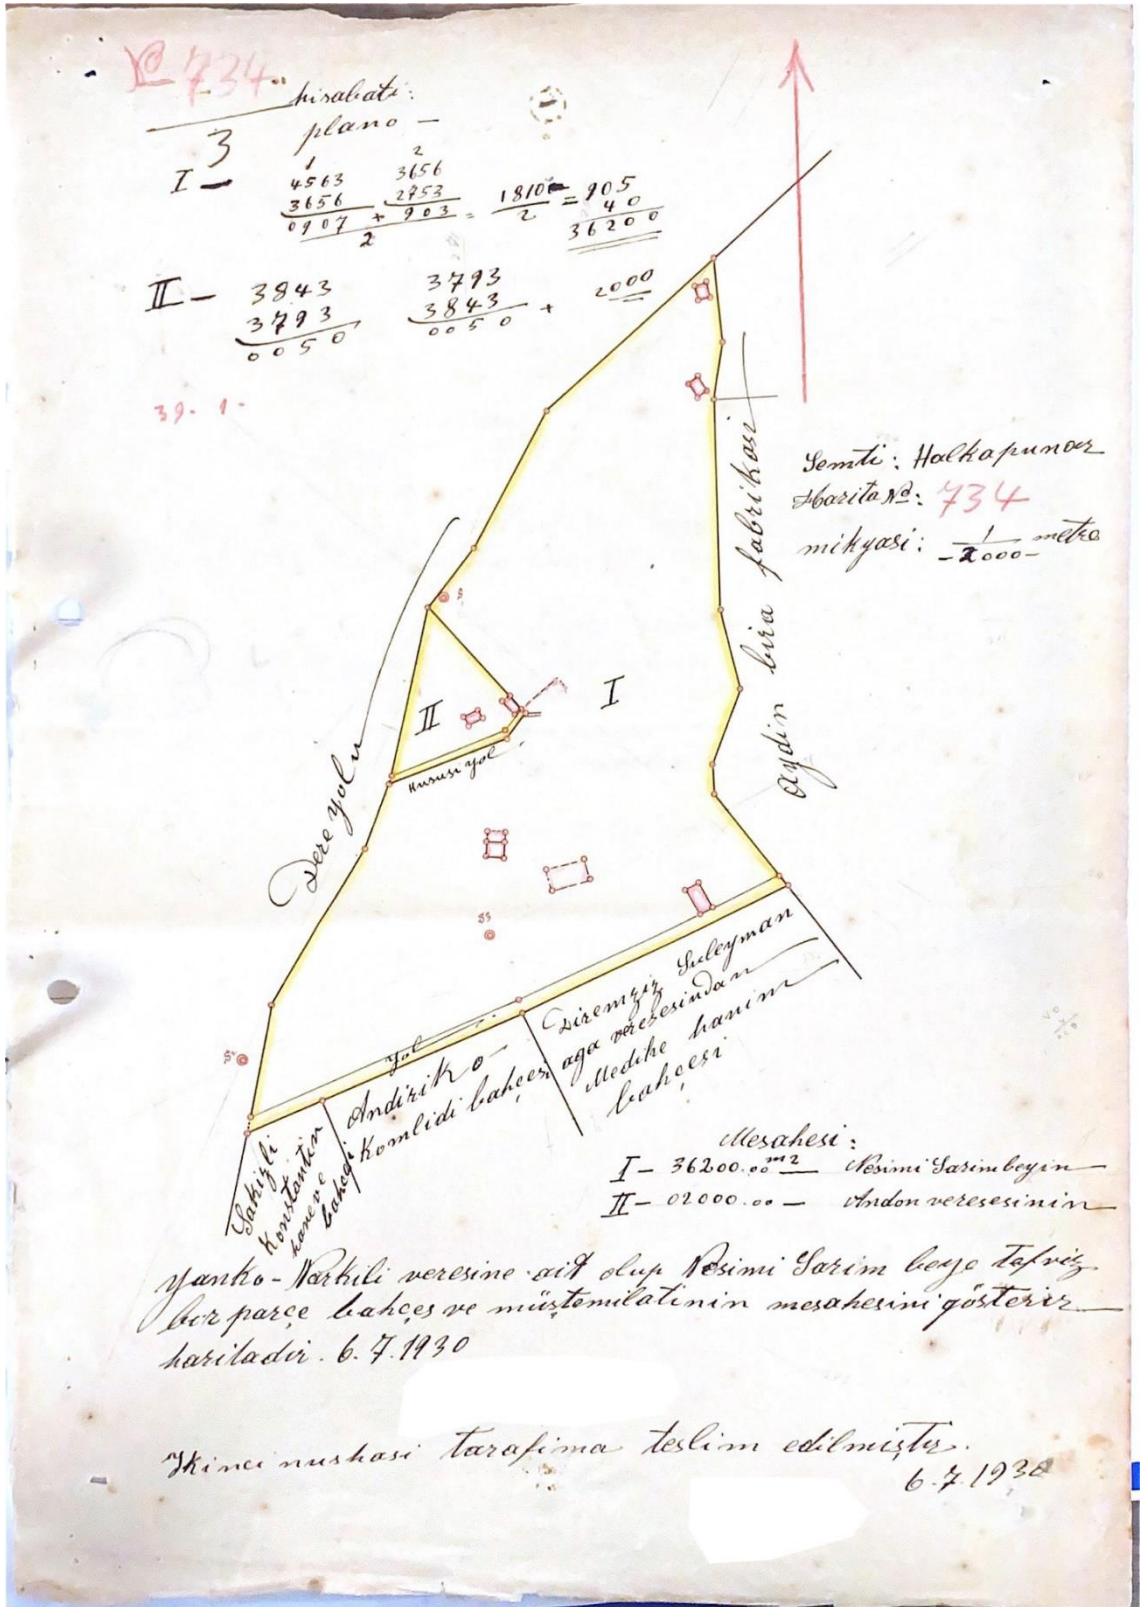 734
hisabati:
plano —
3
I — 1 2
4563 3656
3656 2753
0907 + 903 = 1810 = 905
2 2 40
36200
II — 3843 3793 2000
3793 3843
0050 0050 +
39. 1.
Semti: Halkapunar
Harita No: 734
mikyasi: 1 metro
-2000-
Aydin bira fabrikasi
Dere yolu
S
I
II
Hususi yol
SS
S
Yol
Sakizli
Konstantin
hane ve
bahçesi
Andiriko
Komlidi bahçesi
Diremziz Suleyman
aga veresesindan
Medihe hanim
bahçesi
Mesahesi:
I — 36200.00 m2 — Nesimi Sarim beyin
II — 02000.00 — Andon veresesinin
Yanko - Narkili veresine ait olup Nesimi Sarim beye tefviz
bir parçe bahçes ve müştemilatinin mesahesini gösterir
haritadir. 6.7.1930
Ikinci nushasi tarafima teslim edilmiştir.
6.7.1930